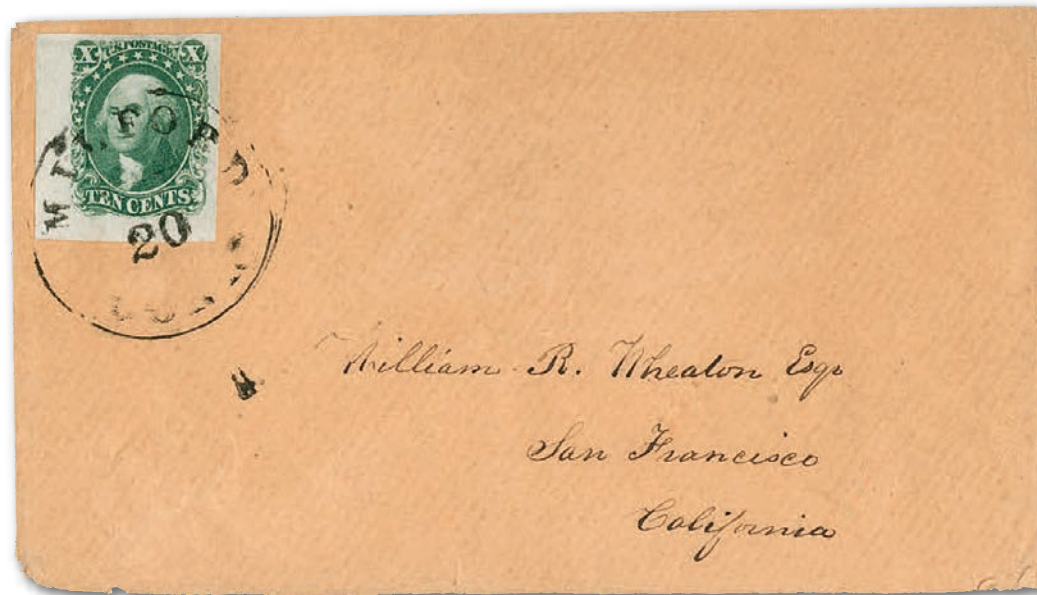 X U.S. POSTAGE X
TEN CENTS
MILFORD
20
CONN
William R. Wheaton Esqr
San Francisco
California